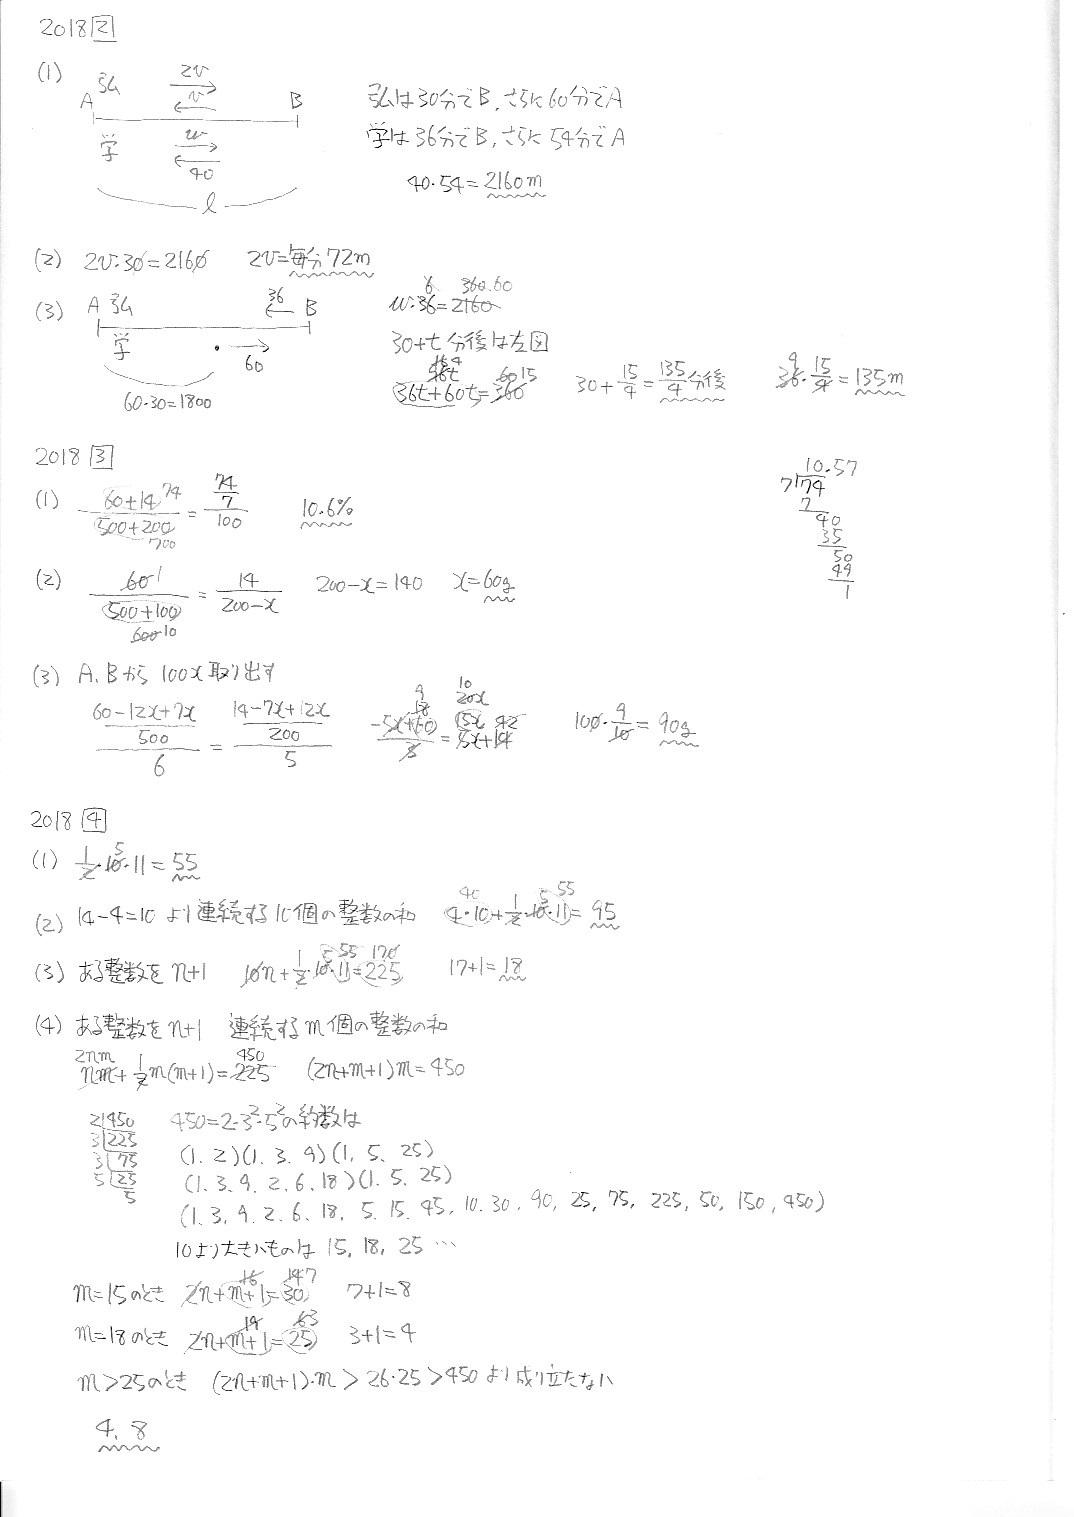 2018 2
(1) A 弘 2v v B 弘は30分でB, さらに60分でA
学 w 40 学は36分でB, さらに54分でA
l 40・54=2160m
(2) 2v・30=2160 2v=毎分72m
(3) A 弘 36 B w・36=2160 6 360.60
学 60 30+t分後は左図
60・30=1800 36t+60t=360 96t 16 4 60 15 30+15/4=135/4分後 36・15/4=135m 9
2018 3
(1) (60+14)/(500+200) 74 700 = (74/7)/100 10.6%
10.57
7)74
7
40
35
50
49
1
(2) 60/(500+100) 1 600 10 = 14/(200-x) 200-x=140 x=60g
(3) A, Bから 100x取り出す
((60-12x+7x)/500)/6 = ((14-7x+12x)/200)/5 (-5x+60)/3 = 5x+14 9 18 10 20x 15x 42 100・9/10=90g
2018 4
(1) 1/2・10・11=55 5
(2) 14-4=10 より連続する10個の整数の和 4・10+1/2・10・11=95 40 5 55
(3) ある整数を n+1 10n+1/2・10・11=225 5 55 170 17+1=18
(4) ある整数を n+1 連続するm個の整数の和
2nm 450
nm+1/2m(m+1)=225 (2n+m+1)m=450
2)450 450=2・3²・5²の約数は
3)225
3)75 (1, 2)(1, 3, 9)(1, 5, 25)
5)25 (1, 3, 9, 2, 6, 18)(1, 5, 25)
5 (1, 3, 9, 2, 6, 18, 5, 15, 45, 10, 30, 90, 25, 75, 225, 50, 150, 450)
10より大きいものは 15, 18, 25 …
m=15のとき 2n+m+1=30 16 14 7 7+1=8
m=18のとき 2n+m+1=25 19 6 3 3+1=4
m>25のとき (2n+m+1)・m > 26・25 > 450 より成り立たない
4, 8